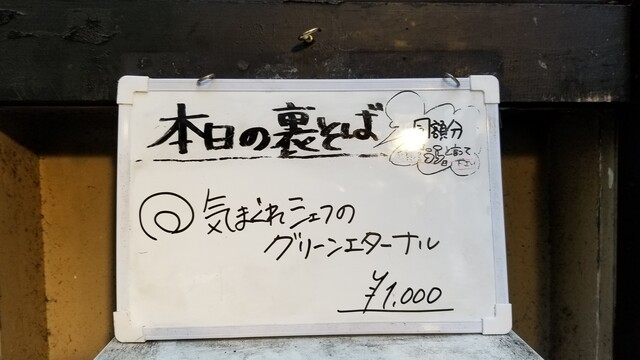 本日の裏そば
同額分
と言って
下さい
気まぐれシェフの
グリーンエターナル
¥1,000